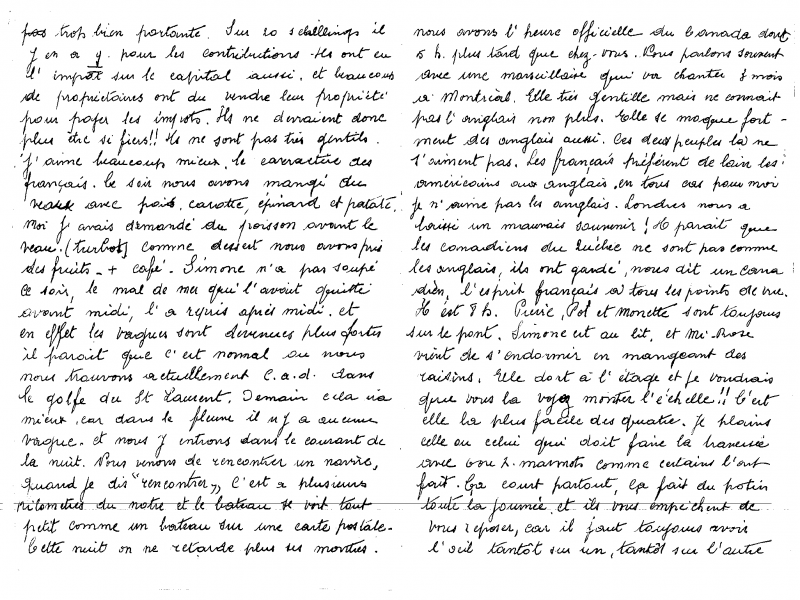 pas trop bien portante. Sur 20 schellings il
y en a 9 pour les contributions. Ils ont eu
l'impôt sur le capital aussi. et beaucoup
de propriétaires ont du vendre leur propriété
pour payer les impots. Ils ne devraient donc
plus être si fiers!! Ils ne sont pas très gentils.
J'aime beaucoup mieux le caractère des
français. Ce soir nous avons mangé du
veau avec pois, carotte, épinard et patate.
Moi j'avais demandé du poisson avant le
veau. (turbot) comme dessert nous avons pris
des fruits - + café. Simone n'a pas soupé
ce soir, le mal de mer qui l'avait quitté
avant midi, l'a repris après midi. et
en effet les vagues sont devenues plus fortes
il parait que c'est normal où nous
nous trouvons actuellement c.a.d. dans
le golfe du St Laurent. Demain cela ira
mieux, car dans le fleuve il n'y a aucune
vague. et nous y entrons dans le courant de
la nuit. Nous venons de rencontrer un navire,
quand je dis "rencontrer", c'est a plusieurs
kilometres du notre et le bateau se voit tout
petit comme un bateau sur une carte postale.
Cette nuit on ne retarde plus ses montres.
nous avons l'heure officielle du Canada dont
5 h. plus tard que chez-vous. Nous parlons souvent
avec une marseillaise qui va chanter 3 mois
à Montréal. Elle très gentille mais ne connait
pas l'anglais non plus. Elle se moque fort-
ment des anglais aussi. Ces deux peuples là ne
s'aiment pas. Les français préfèrent de loin les
américains aux anglais, en tous cas pour moi
je n'aime pas les anglais. Londres nous a
laissé un mauvais souvenir! Il parait que
les canadiens du Québec ne sont pas comme
les anglais, ils ont gardé, nous dit un cana
dien, l'esprit français à tous les points de vue.
Il est 8 h. Pierre, Pol et Monette sont toujours
sur le pont. Simone est au lit, et Mi-Rose
vient de s'endormir en mangeant des
raisins. Elle dort à l'étage et je voudrais
que vous la voyez monter l'échelle!! C'est
elle la plus facile des quatre. Je plains
celle ou celui qui doit faire la traversée
avec 2. marmots comme certains l'ont
fait. Ça court partout, ça fait du potin
toute la journée, et ils vous empêchent de
vous reposer, car il faut toujours avoir
l'oeil tantôt sur un, tantôt sur l'autre